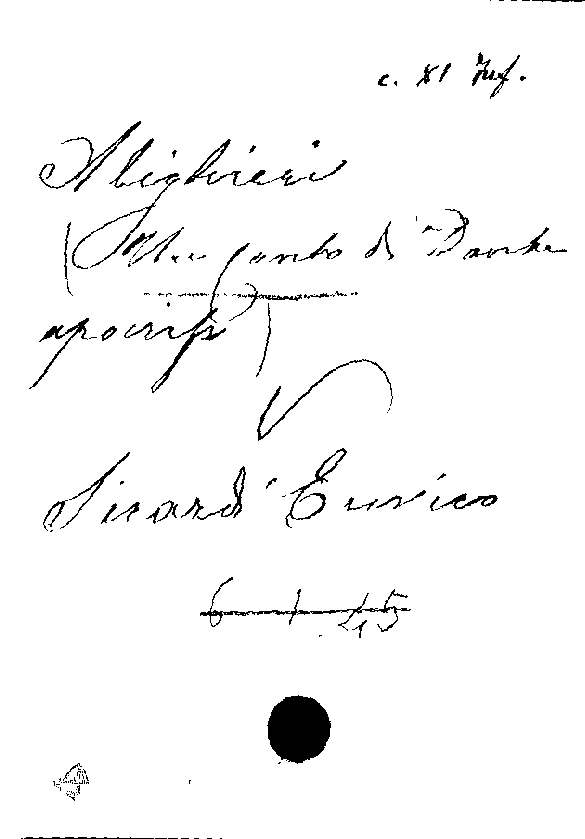 c. XI Inf.
Alighieri
(Un canto di Dante
apocrifo)
Sicardi Enrico
6 1 45